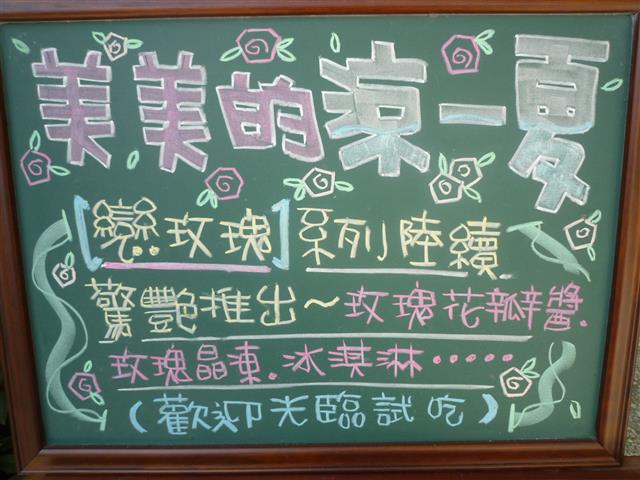 美美的涼一夏
[戀玫瑰]系列陸續
驚艷推出~玫瑰花瓣醬.
玫瑰晶凍.冰淇淋‧‧‧‧‧
(歡迎光臨試吃)